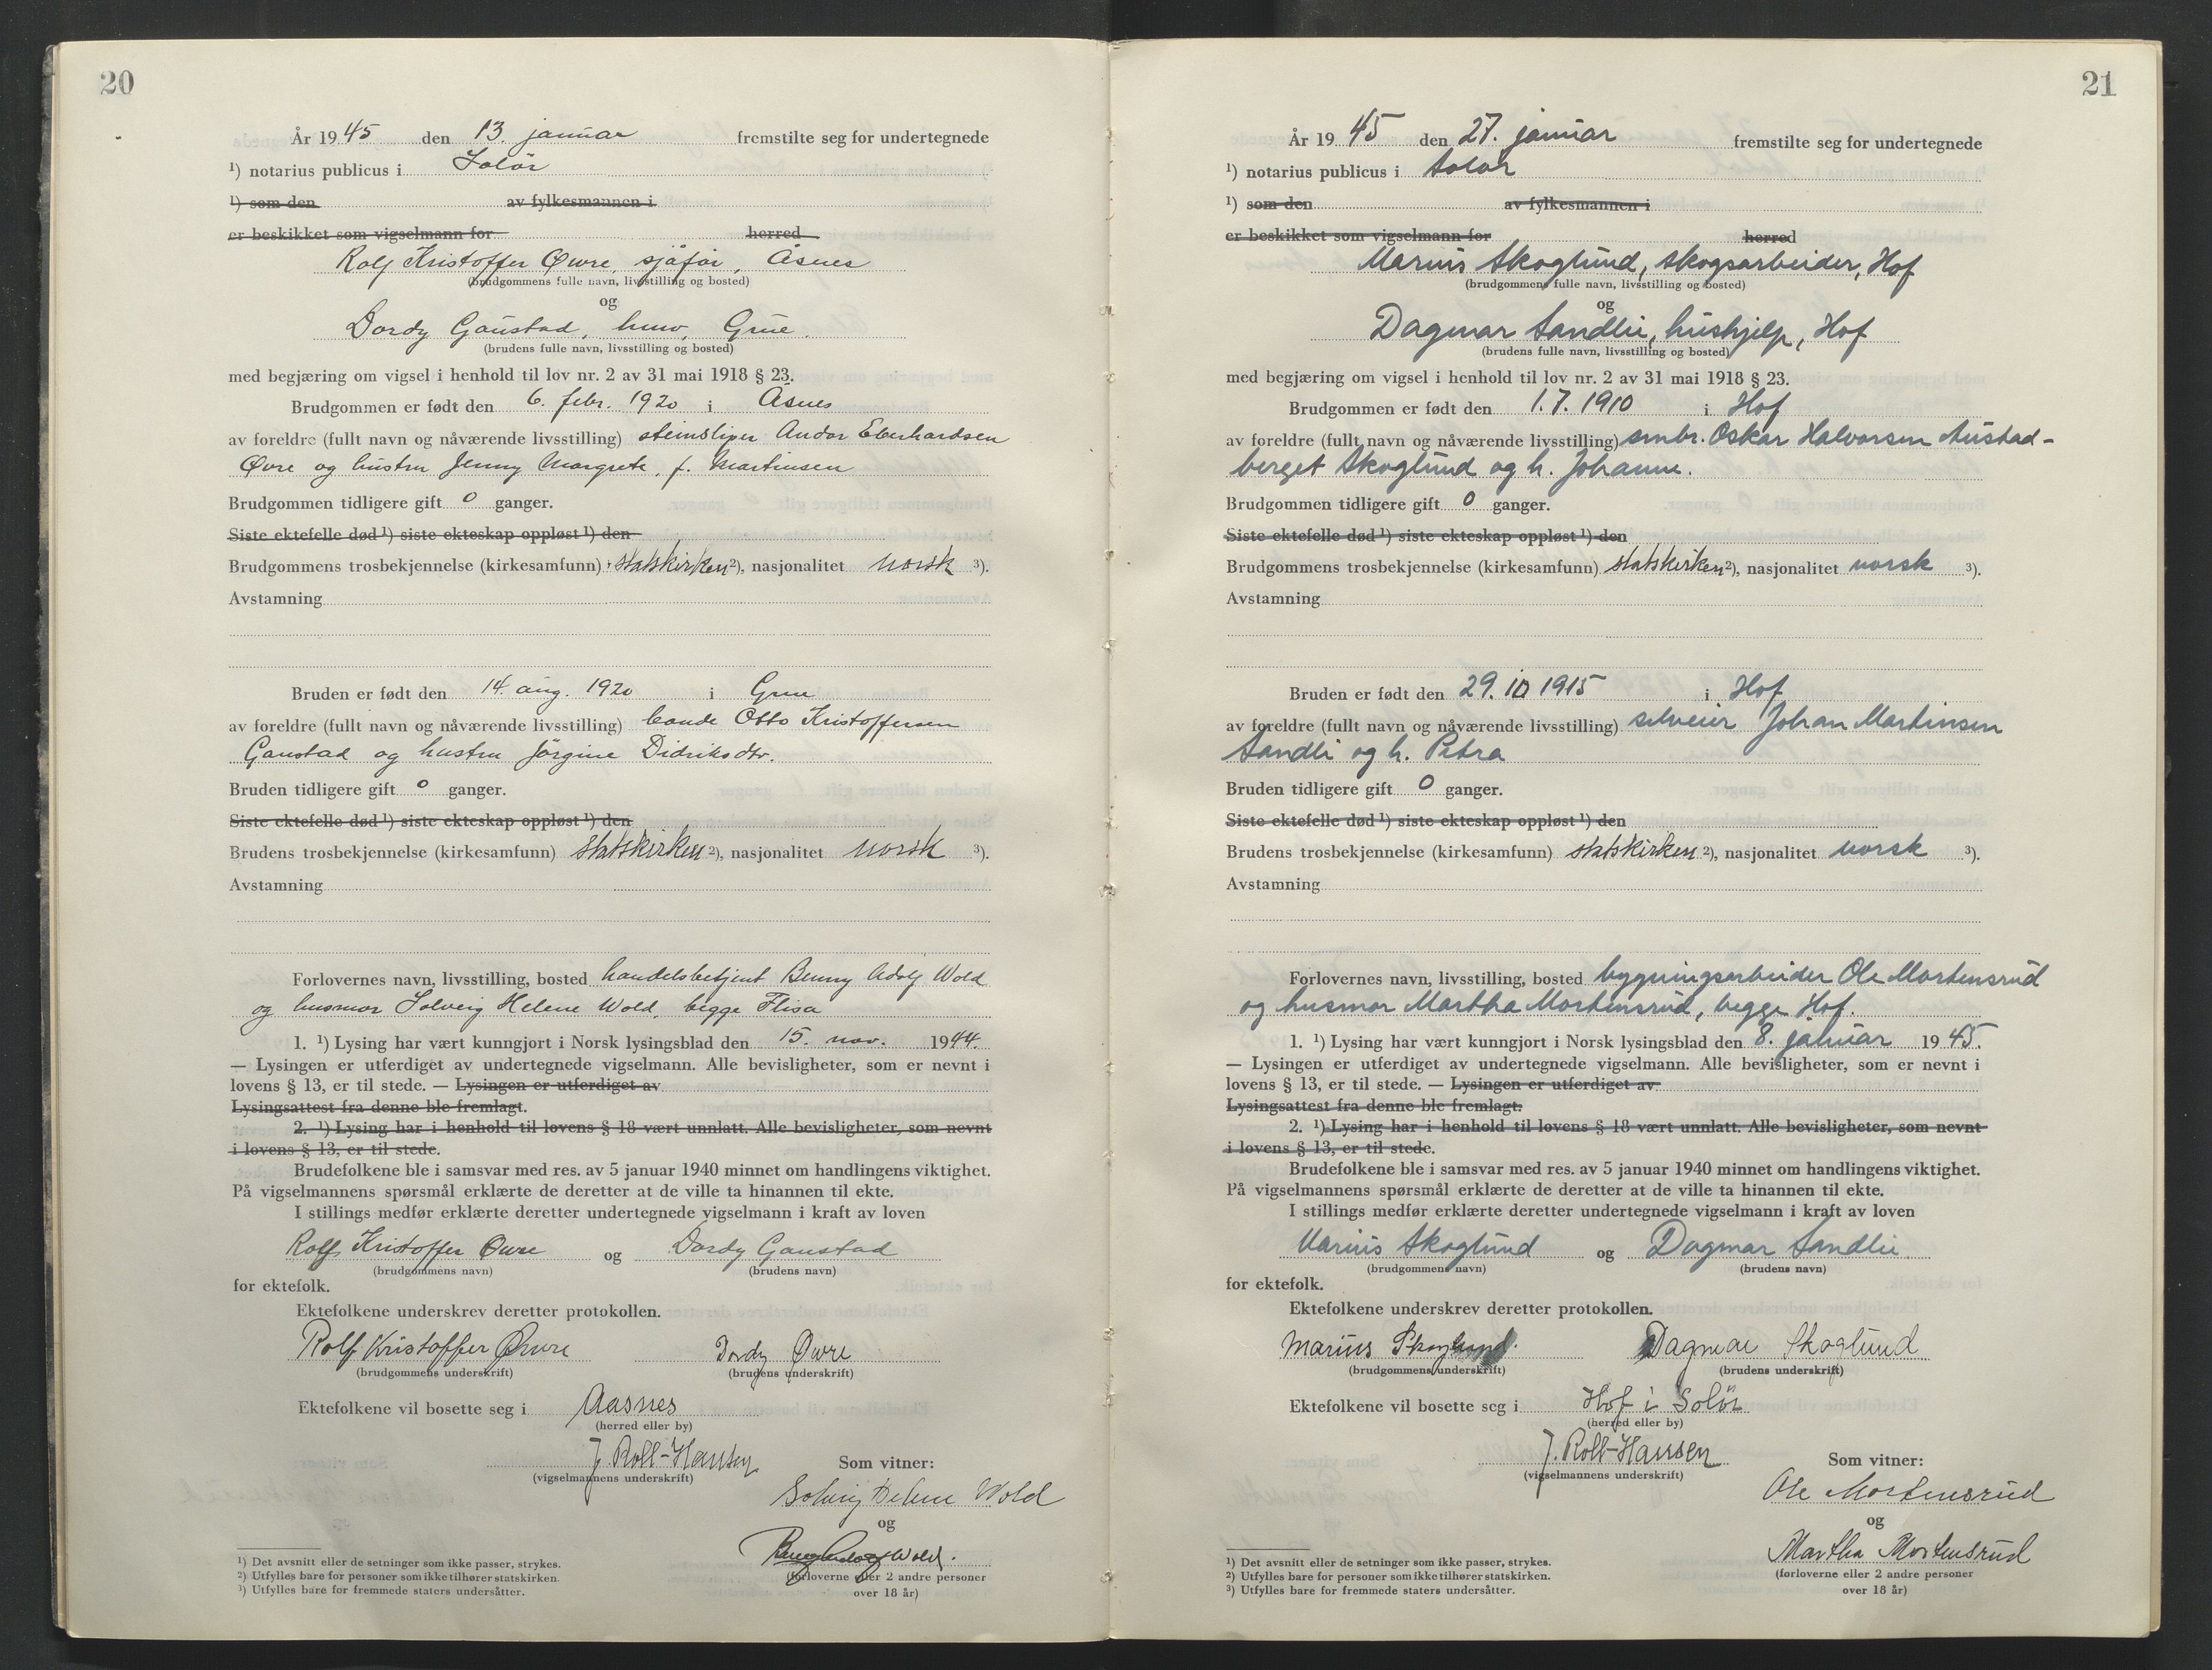 20
År 1945 den 13. januar fremstilte seg for undertegnede
¹) notarius publicus i Solør
¹) som den av fylkesmannen i
er beskikket som vigselmann for herred
Rolf Kristoffer Øvre, sjåfør, Åsnes
(brudgommens fulle navn, livsstilling og bosted)
og
Dordy Gaustad, hmv, Grue.
(brudens fulle navn, livsstilling og bosted)
med begjæring om vigsel i henhold til lov nr. 2 av 31 mai 1918 § 23.
Brudgommen er født den 6. febr. 1920 i Åsnes
av foreldre (fullt navn og nåværende livsstilling) steinsliper Andor Eberhardsen
Øvre og hustru Jenny Margrete, f. Martinsen
Brudgommen tidligere gift 0 ganger.
Siste ektefelle død ¹) siste ekteskap oppløst ¹) den
Brudgommens trosbekjennelse (kirkesamfunn) statskirken ²), nasjonalitet norsk ³).
Avstamning
Bruden er født den 14. aug. 1920 i Grue
av foreldre (fullt navn og nåværende livsstilling) bonde Otto Kristoffersen
Gaustad og hustru Jørgine Didriksdtr.
Bruden tidligere gift 0 ganger.
Siste ektefelle død ¹) siste ekteskap oppløst ¹) den
Brudens trosbekjennelse (kirkesamfunn) statskirken ²), nasjonalitet norsk ³).
Avstamning
Forlovernes navn, livsstilling, bosted handelsbetjent Benny Adolf Wold
og husmor Solveig Helene Wold, begge Flisa
1. ¹) Lysing har vært kunngjort i Norsk lysingsblad den 15. nov. 1944.
— Lysingen er utferdiget av undertegnede vigselmann. Alle bevisligheter, som er nevnt i
lovens § 13, er til stede. — Lysingen er utferdiget av
Lysingsattest fra denne ble fremlagt.
2. ¹) Lysing har i henhold til lovens § 18 vært unnlatt. Alle bevisligheter, som nevnt
i lovens § 13, er til stede.
Brudefolkene ble i samsvar med res. av 5 januar 1940 minnet om handlingens viktighet.
På vigselmannens spørsmål erklærte de deretter at de ville ta hinannen til ekte.
I stillings medfør erklærte deretter undertegnede vigselmann i kraft av loven
Rolf Kristoffer Øvre og Dordy Gaustad
(brudgommens navn) (brudens navn)
for ektefolk.
Ektefolkene underskrev deretter protokollen.
Rolf Kristoffer Øvre Dordy Øvre
(brudgommens underskrift) (brudens underskrift)
Ektefolkene vil bosette seg i Aasnes
(herred eller by)
J. Roll-Hansen Som vitner:
(vigselmannens underskrift)
Solveig Helene Wold
og
Benny Adolf Wold.
(forloverne eller 2 andre personer
over 18 år)
¹) Det avsnitt eller de setninger som ikke passer, strykes.
²) Utfylles bare for personer som ikke tilhører statskirken.
³) Utfylles bare for fremmede staters undersåtter.
21
År 1945 den 27. januar fremstilte seg for undertegnede
¹) notarius publicus i Solør
¹) som den av fylkesmannen i
er beskikket som vigselmann for herred
Marius Skoglund, skogsarbeider, Hof
(brudgommens fulle navn, livsstilling og bosted)
og
Dagmar Sandlie, hushjelp, Hof
(brudens fulle navn, livsstilling og bosted)
med begjæring om vigsel i henhold til lov nr. 2 av 31 mai 1918 § 23.
Brudgommen er født den 1.7.1910 i Hof
av foreldre (fullt navn og nåværende livsstilling) smbr. Oskar Halvorsen Austad-
berget Skoglund og h. Johanne.
Brudgommen tidligere gift 0 ganger.
Siste ektefelle død ¹) siste ekteskap oppløst ¹) den
Brudgommens trosbekjennelse (kirkesamfunn) statskirken ²), nasjonalitet norsk ³).
Avstamning
Bruden er født den 29.10 1915 i Hof
av foreldre (fullt navn og nåværende livsstilling) selveier Johan Martinsen
Sandli og h. Petra
Bruden tidligere gift 0 ganger.
Siste ektefelle død ¹) siste ekteskap oppløst ¹) den
Brudens trosbekjennelse (kirkesamfunn) statskirken ²), nasjonalitet norsk ³).
Avstamning
Forlovernes navn, livsstilling, bosted bygningsarbeider Ole Mortensrud
og husmor Martha Mortensrud, begge Hof.
1. ¹) Lysing har vært kunngjort i Norsk lysingsblad den 8. januar 1945.
— Lysingen er utferdiget av undertegnede vigselmann. Alle bevisligheter, som er nevnt i
lovens § 13, er til stede. — Lysingen er utferdiget av
Lysingsattest fra denne ble fremlagt.
2. ¹) Lysing har i henhold til lovens § 18 vært unnlatt. Alle bevisligheter, som nevnt
i lovens § 13, er til stede.
Brudefolkene ble i samsvar med res. av 5 januar 1940 minnet om handlingens viktighet.
På vigselmannens spørsmål erklærte de deretter at de ville ta hinannen til ekte.
I stillings medfør erklærte deretter undertegnede vigselmann i kraft av loven
Marius Skoglund og Dagmar Sandlie
(brudgommens navn) (brudens navn)
for ektefolk.
Ektefolkene underskrev deretter protokollen.
Marius Skoglund. Dagmar Skoglund
(brudgommens underskrift) (brudens underskrift)
Ektefolkene vil bosette seg i Hof i Solør
(herred eller by)
J. Roll-Hansen Som vitner:
(vigselmannens underskrift)
Ole Mortensrud
og
Martha Mortensrud
(forloverne eller 2 andre personer
over 18 år)
¹) Det avsnitt eller de setninger som ikke passer, strykes.
²) Utfylles bare for personer som ikke tilhører statskirken.
³) Utfylles bare for fremmede staters undersåtter.